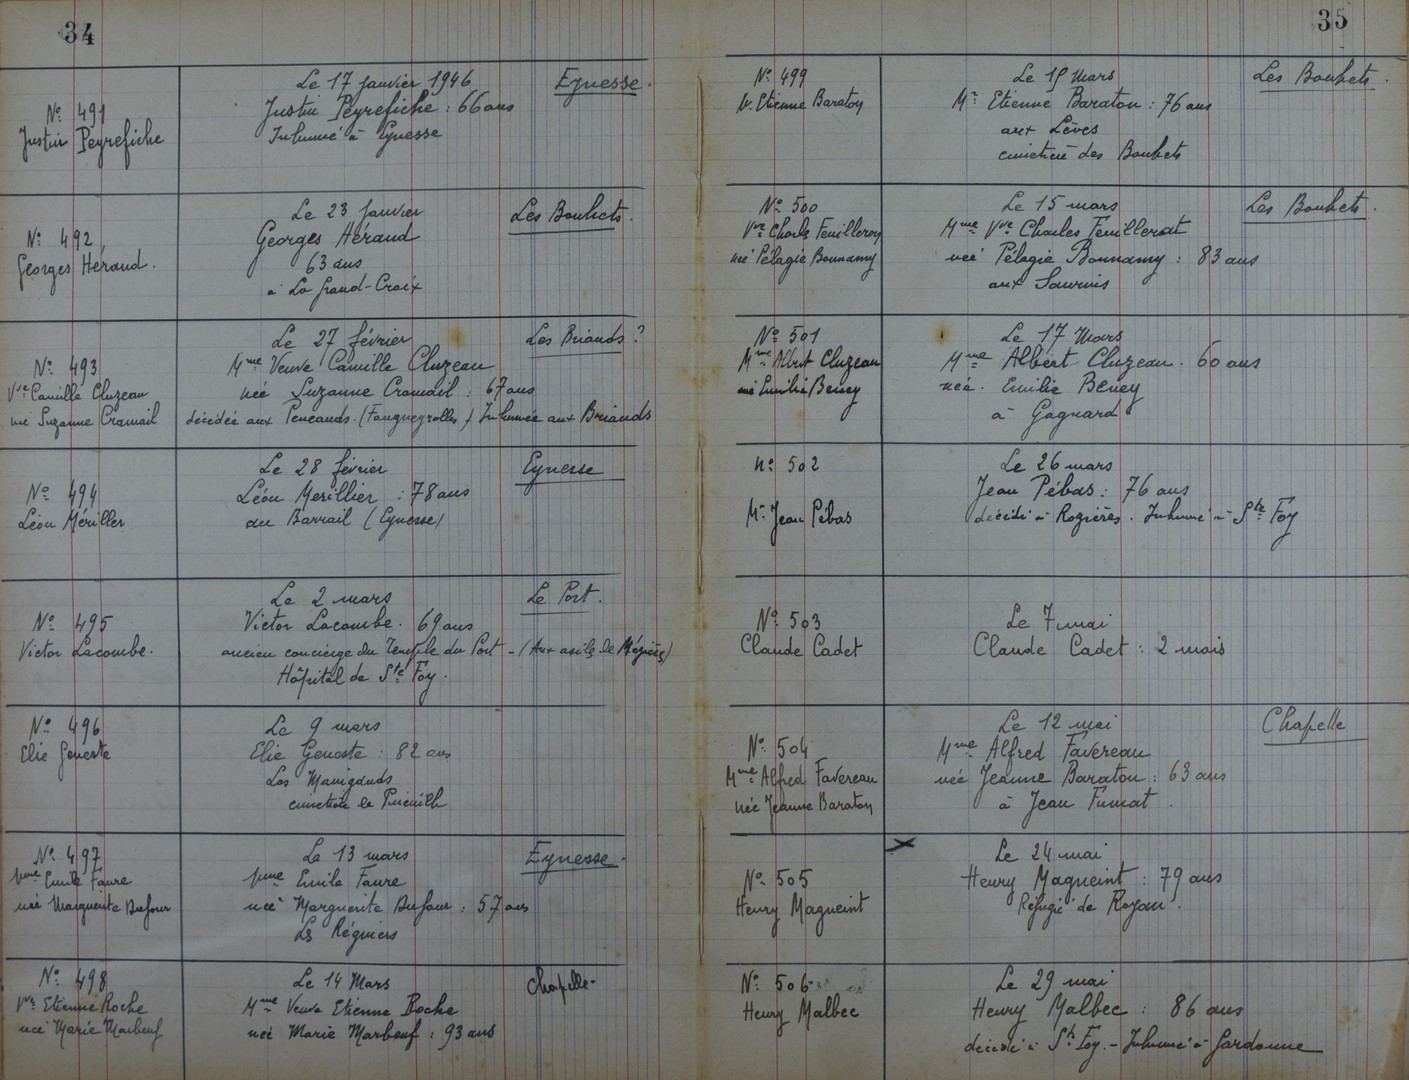 34
Nº 491
Justin Peyrefiche
Le 17 Janvier 1946
Eynesse.
Justin Peyrefiche : 66 ans
Inhumé à Eynesse
Nº 492
Georges Héraud.
Le 23 Janvier
Les Bouhets.
Georges Héraud
63 ans
à La Grand-Croix
Nº 493
Vve Camille Cluzeau
née Suzanne Cramail
Le 27 février
Les Briands ?
Mme Veuve Camille Cluzeau
née Suzanne Cramail : 67 ans
décédée aux (Fougueyrolles) Inhumée aux Briands
Nº 494
Léon Mériller
Le 28 février
Eynesse
Léon Merillier : 78 ans
au Barrail (Eynesse)
Nº 495
Victor Lacombe.
Le 2 mars
Le Port.
Victor Lacombe. 69 ans
ancien concierge du Temple du Port - (Aux asiles de
Hôpital de Ste Foy.
Nº 496
Elie Geneste
Le 9 mars
Elie Geneste : 82 ans
Les
cimetière de
Nº 497
Mme Emile Faure
née Marguerite Dufour
Le 13 mars
Eynesse.
Mme Emile Faure
née Marguerite Dufour : 57 ans
Les Régniers
Nº 498
Vve Etienne Roche
née Marie Marboeuf
Le 14 Mars
Chapelle-
Mme Veuve Etienne Roche
née Marie Marboeuf : 93 ans
35
Nº 499
Etienne Baraton
Le 15 Mars
Les Bouhets.
Mr Etienne Baraton : 76 ans
aux Lèves
cimetière des Bouhets
Nº 500
Vve Charles Feuillerat
née Pélagie Bonnamy
Le 15 mars
Les Bouhets.
Mme Vve Charles Feuillerat
née Pélagie Bonnamy : 83 ans
aux
Nº 501
Mme Albert Cluzeau
née Emilie Beney
Le 17 Mars
Mme Albert Cluzeau. 60 ans
née. Emilie Beney
à Gagnard
Nº 502
Mr Jean Pébas
Le 26 mars
Jean Pébas : 76 ans
décédé à Rozières. Inhumé à Ste Foy
Nº 503
Claude Cadet
Le 7 mai
Claude Cadet : 2 mois
Nº 504
Mme Alfred Favereau
née Jeanne Baraton
Le 12 mai
Chapelle
Mme Alfred Favereau
née Jeanne Baraton : 63 ans
à Jean Fumat
Nº 505
Henry Magneint
Le 24 mai
Henry Magneint : 79 ans
Réfugié de Royan.
Nº 506
Henry Malbec
Le 29 mai
Henry Malbec : 86 ans
décédé à Ste Foy. - Inhumé à Gardonne